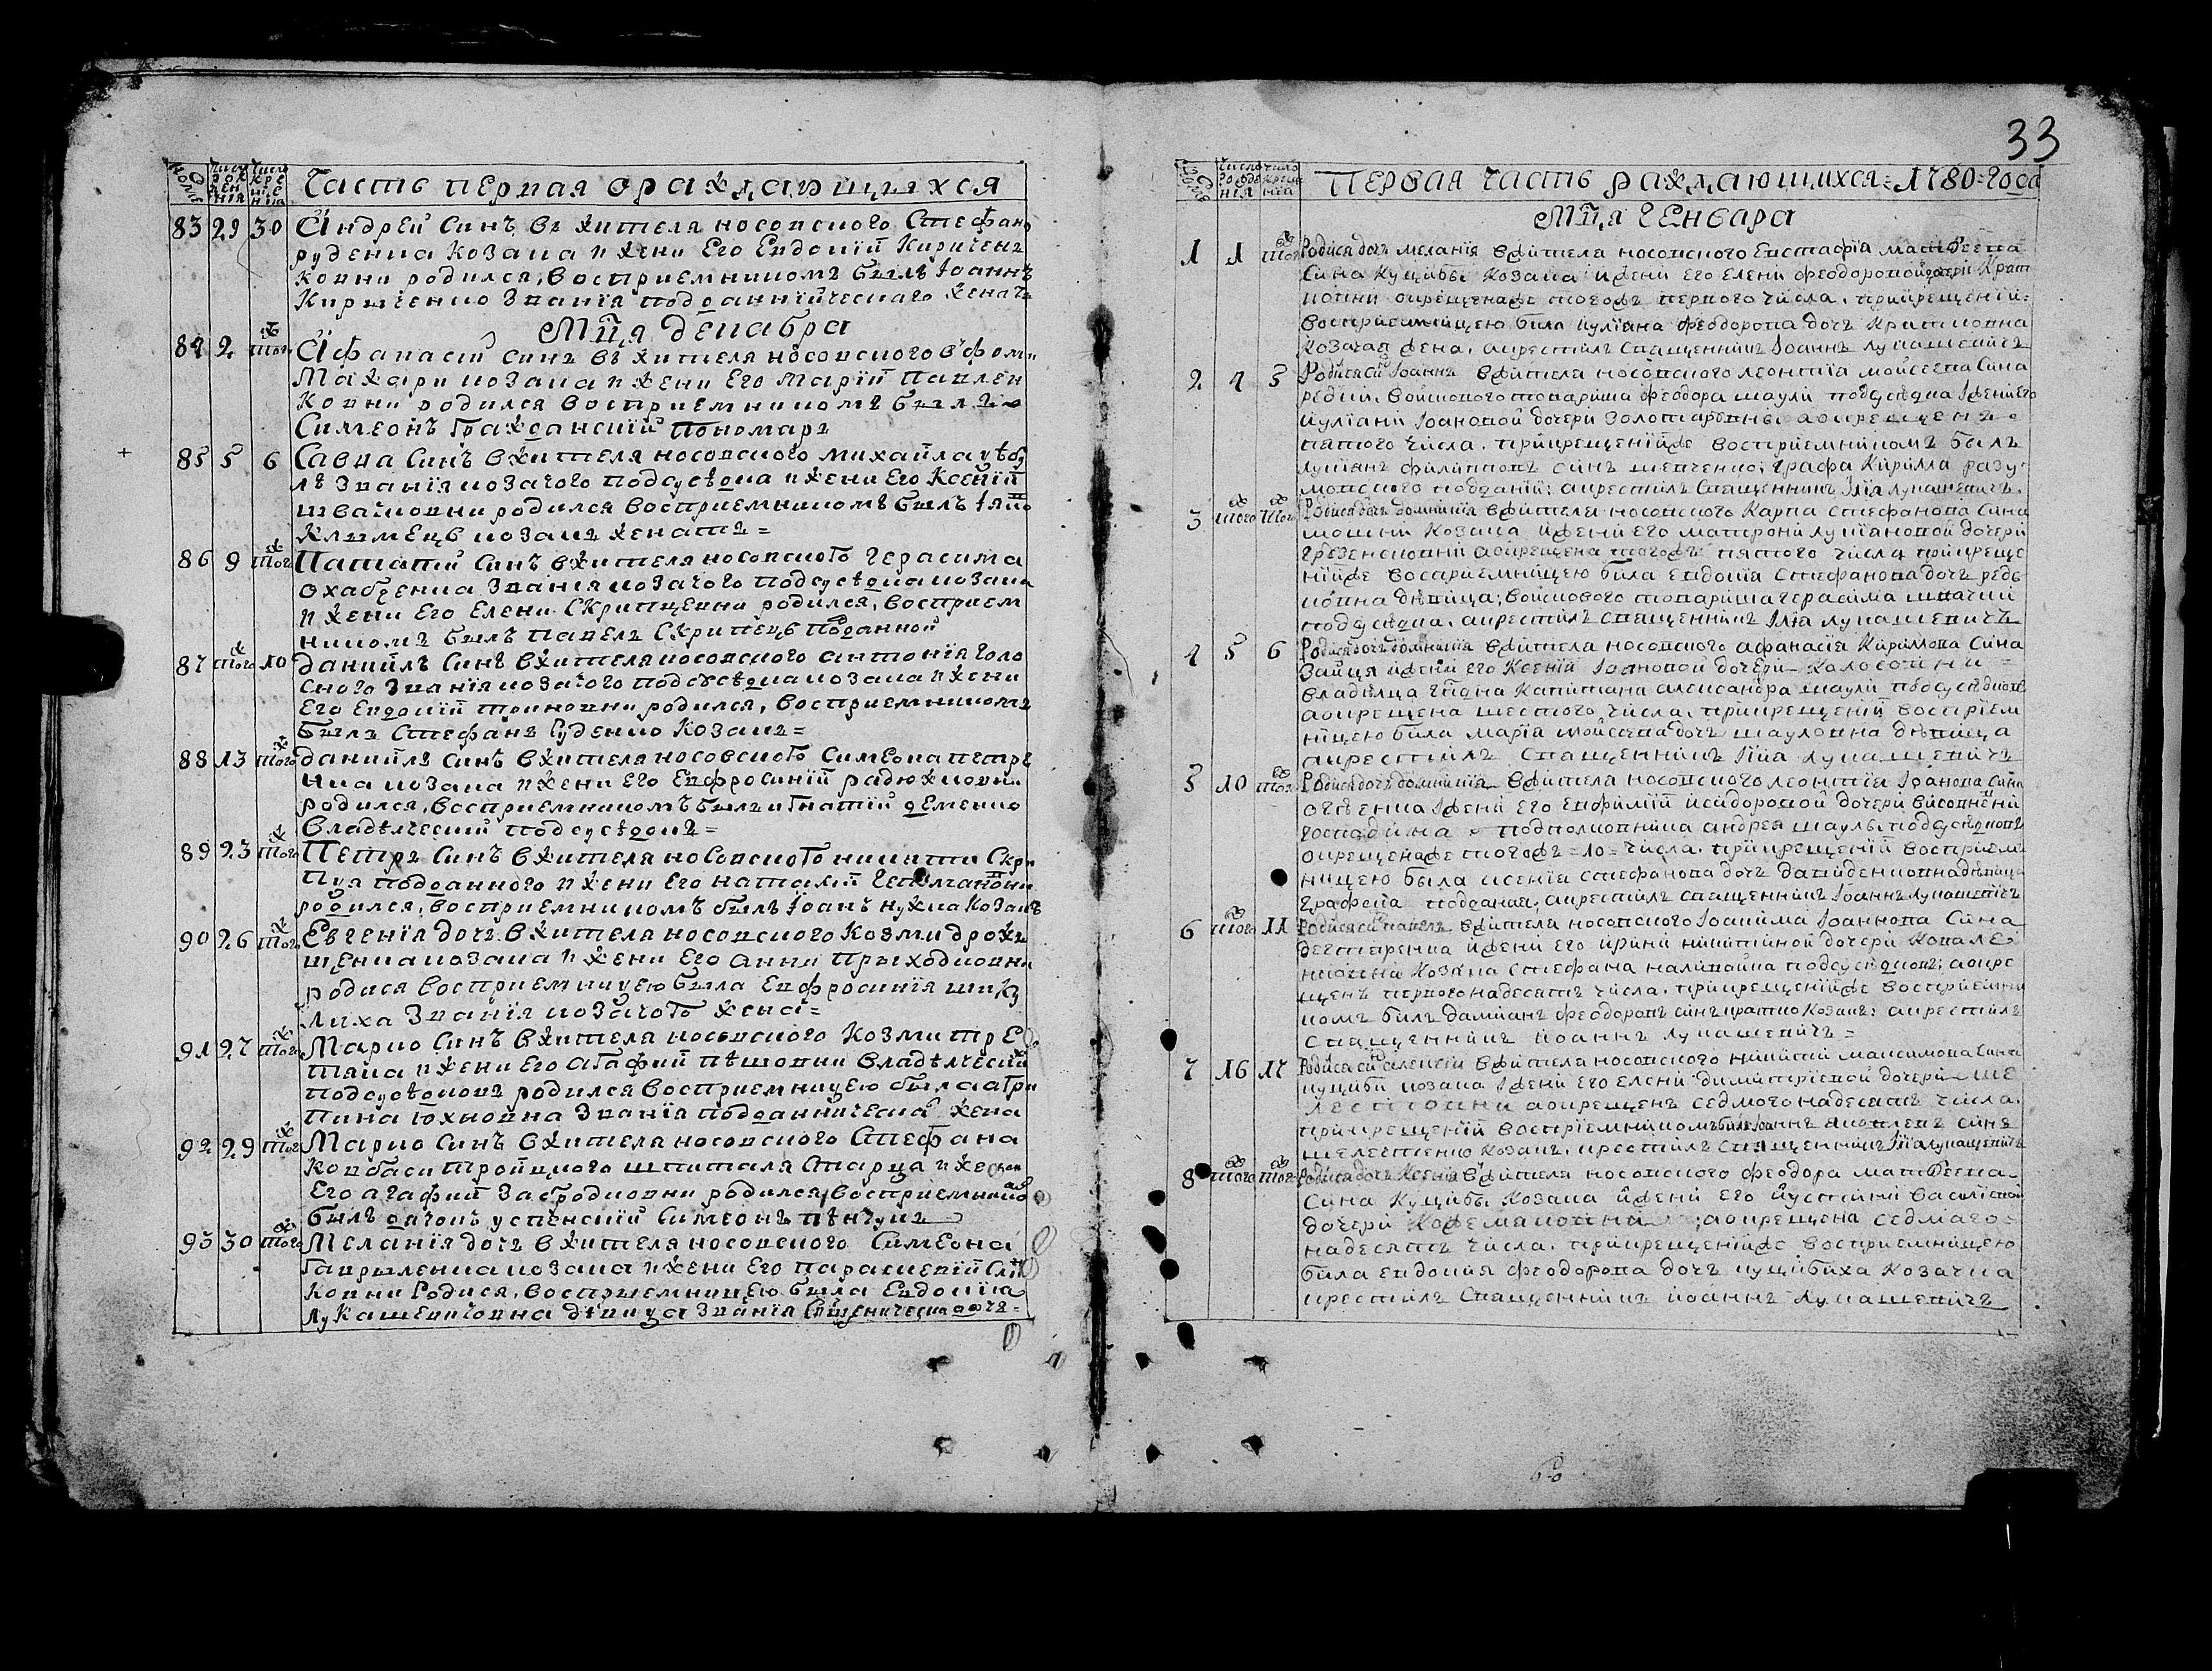 33
№ Числ рожденія Числ крещенія Часть первая о раждающихся
83 29 30 Андрей Синъ въ жителя носовского Стефана
руденка Козака и жени Его Евдокїй Киричен
ковни родился, восприемникомъ былъ Іоаннъ
Кириченко Званїя подданнїческаго женатъ
Мца декабра
84 2 тогож Афанасїй синъ въ жителя носовского Ефома
Мажари козака и жени Его Марїй Павлен
Ковни родился восприемникомъ былъ
Симеонъ Гражданскїй Пономарь
85 5 6 Савка Синъ в жителя носовского михайла
Званїя козачого подсусѣдка и жени Его Ксенїй
швачковни родился восприемникомъ былъ
Климецъ козакъ женатъ =
86 9 тогож Патапїй Синъ в жителя носовского герасима
Званїя козачого подсусѣдка козака
и жени Его Елени Скрипцевни родился, восприем
никомъ былъ павелъ Скрипецъ подданной
87 тогож 10 данїилъ Синъ в жителя носовского антонїя голо
Званїя козачого подсусѣдка козака и жени
Его Евдокїй родился, восприемникомъ
былъ Стефанъ Руденко Козакъ =
88 13 тогож данїилъ Синъ в жителя носовского Симеона петре
нка козака и жени Его Евфросинїй
родился, восприемникомъ былъ игнатїй деменко
владѣлческїй подсусѣдокъ =
89 23 тогож Петръ Синъ в жителя носовского никити Скри
пца подданного и жени Его наталїй
родился, восприемникомъ былъ Іоанъ нужка Козакъ
90 26 тогож Евгенїя дочъ в жителя носовского Козми дрож
щенка козака и жени Его анни Приходковни
родися восприемницею была Евфросинїя
Званїя козачого жена =
91 27 тогож Марко Синъ в жителя носовского Козми
и жени Его агафїй владѣлческїй
подсусѣдковъ родился восприемницею была агри
пина Юхновна Званїя подданническа жена
92 29 тогож Марко Синъ в жителя носовского Стефана
Ковбаси тройцкого шпиталя Старца и жени
Его агафїй родился, восприемникомъ
былъ дячокъ успенскїй Симеонъ
93 30 тогож Меланїя дочъ в жителя носовского Симеона
Гавриленка козака и жени Его параскевїй
Ковни Родися, восприемницею была Евдокїя
Лукашевичовна дѣвица Званїя Священическа дочъ =
№ Число рожденія Число крещенія Первая часть раждающихся = 1780 = года
Мца Генвара
1 1 тогож Родися дочъ меланїя в жителя носовского Евстафїя матвеева
Сина Куциби Козака и жени его Елени феодоровой дочери Крат
ковни окрещенаже тогожъ первого числа. прикрещенїй
восприемницею била Иулїана феодорова дочъ Кратковна
Козачая жена. а крестилъ священникъ Іоаннъ лукашевичъ
2 4 5 Родися синъ Іоаннъ в жителя носовского леонтїя мойсеева Сина
войскового товариша феодора шаули подсусѣдка и жени его
Иулїани Іоановой дочери а окрещенъ
пятого числа. прикрещенїйже восприемникомъ былъ
лукїанъ филиповъ синъ шевченко, графа Кирилла разу
мовского подданїй: а крестилъ Священникъ Илїя лукашевичъ.
3 тогож тогож Родися дочъ домникїя в жителя носовского Карпа Стефанова Сина
мошни Козака и жени его матрони лукїановой дочери
а окрещена тогожъ пятого числа прикреще
нїйже восприемницею била евдокїя Стефанова дочъ редь
ковна дѣвица; войскового товариша герасима шкачки
подсусѣдка. а крестилъ священникъ Илїя лукашевичъ
4 5 6 Родися дочъ домникїя в жителя носовского афанасїя Кирилова Сина
Зайця и жени его Ксенїй Іоановой дочери
владѣлца гпдна Капитана александра шаули подсусѣдковъ
а окрещена шестого числа. прикрещенїй воспрїем
ницею била марїя мойсеева дочъ шауловна дѣвица
а крестилъ Священникъ Илїя лукашевичъ
5 10 тогож Родися дочъ домникїя в жителя носовского леонтїя Іоанова Сина
и жени его Евфимїй исидоровой дочери
господина подполковника андрея шаули подсусѣдковъ
окрещенаже тогожъ = 10 = числа. прикрещенїй восприем
ницею была ксенїя стефанова дочъ давиденковна дѣвица
графска подданая, а крестилъ священникъ Іоаннъ Лукашевичъ
6 тогож 11 Родися синъ павелъ в жителя носовского Іоакима Іоаннова Сина
дегтяренка и жени его ирини никитиной дочери Ковале
нковни Козака стефана наливайка подсусѣдковъ; а окре
щенъ первогонадесять числа. прикрещенїйже восприемни
комъ билъ дамїанъ феодоровъ синъ кратко Козакъ: а крестилъ
священникъ иоаннъ лукашевичъ =
7 16 17 Родися синъ в жителя носовского никити максимова Сина
куциби козака и жени его елени димитрїевой дочери ше
а окрещенъ седмогонадесять числа.
прикрещенїй воспрїемникомъ билъ Іоаннъ яковлевъ синъ
козакъ. крестилъ священникъ Илїя лукашевичъ
8 тогож тогож Родися дочъ Ксенїя в жителя носовского феодора матвеева
Сина Куциби Козака и жени его иустинїй василїевой
дочери ; а окрещена седмаго
надесять числа. прикрещенїйже восприемницею
била евдокия феодорова дочъ куцибиха козачка
крестилъ Священникъ иоаннъ лукашевичъ